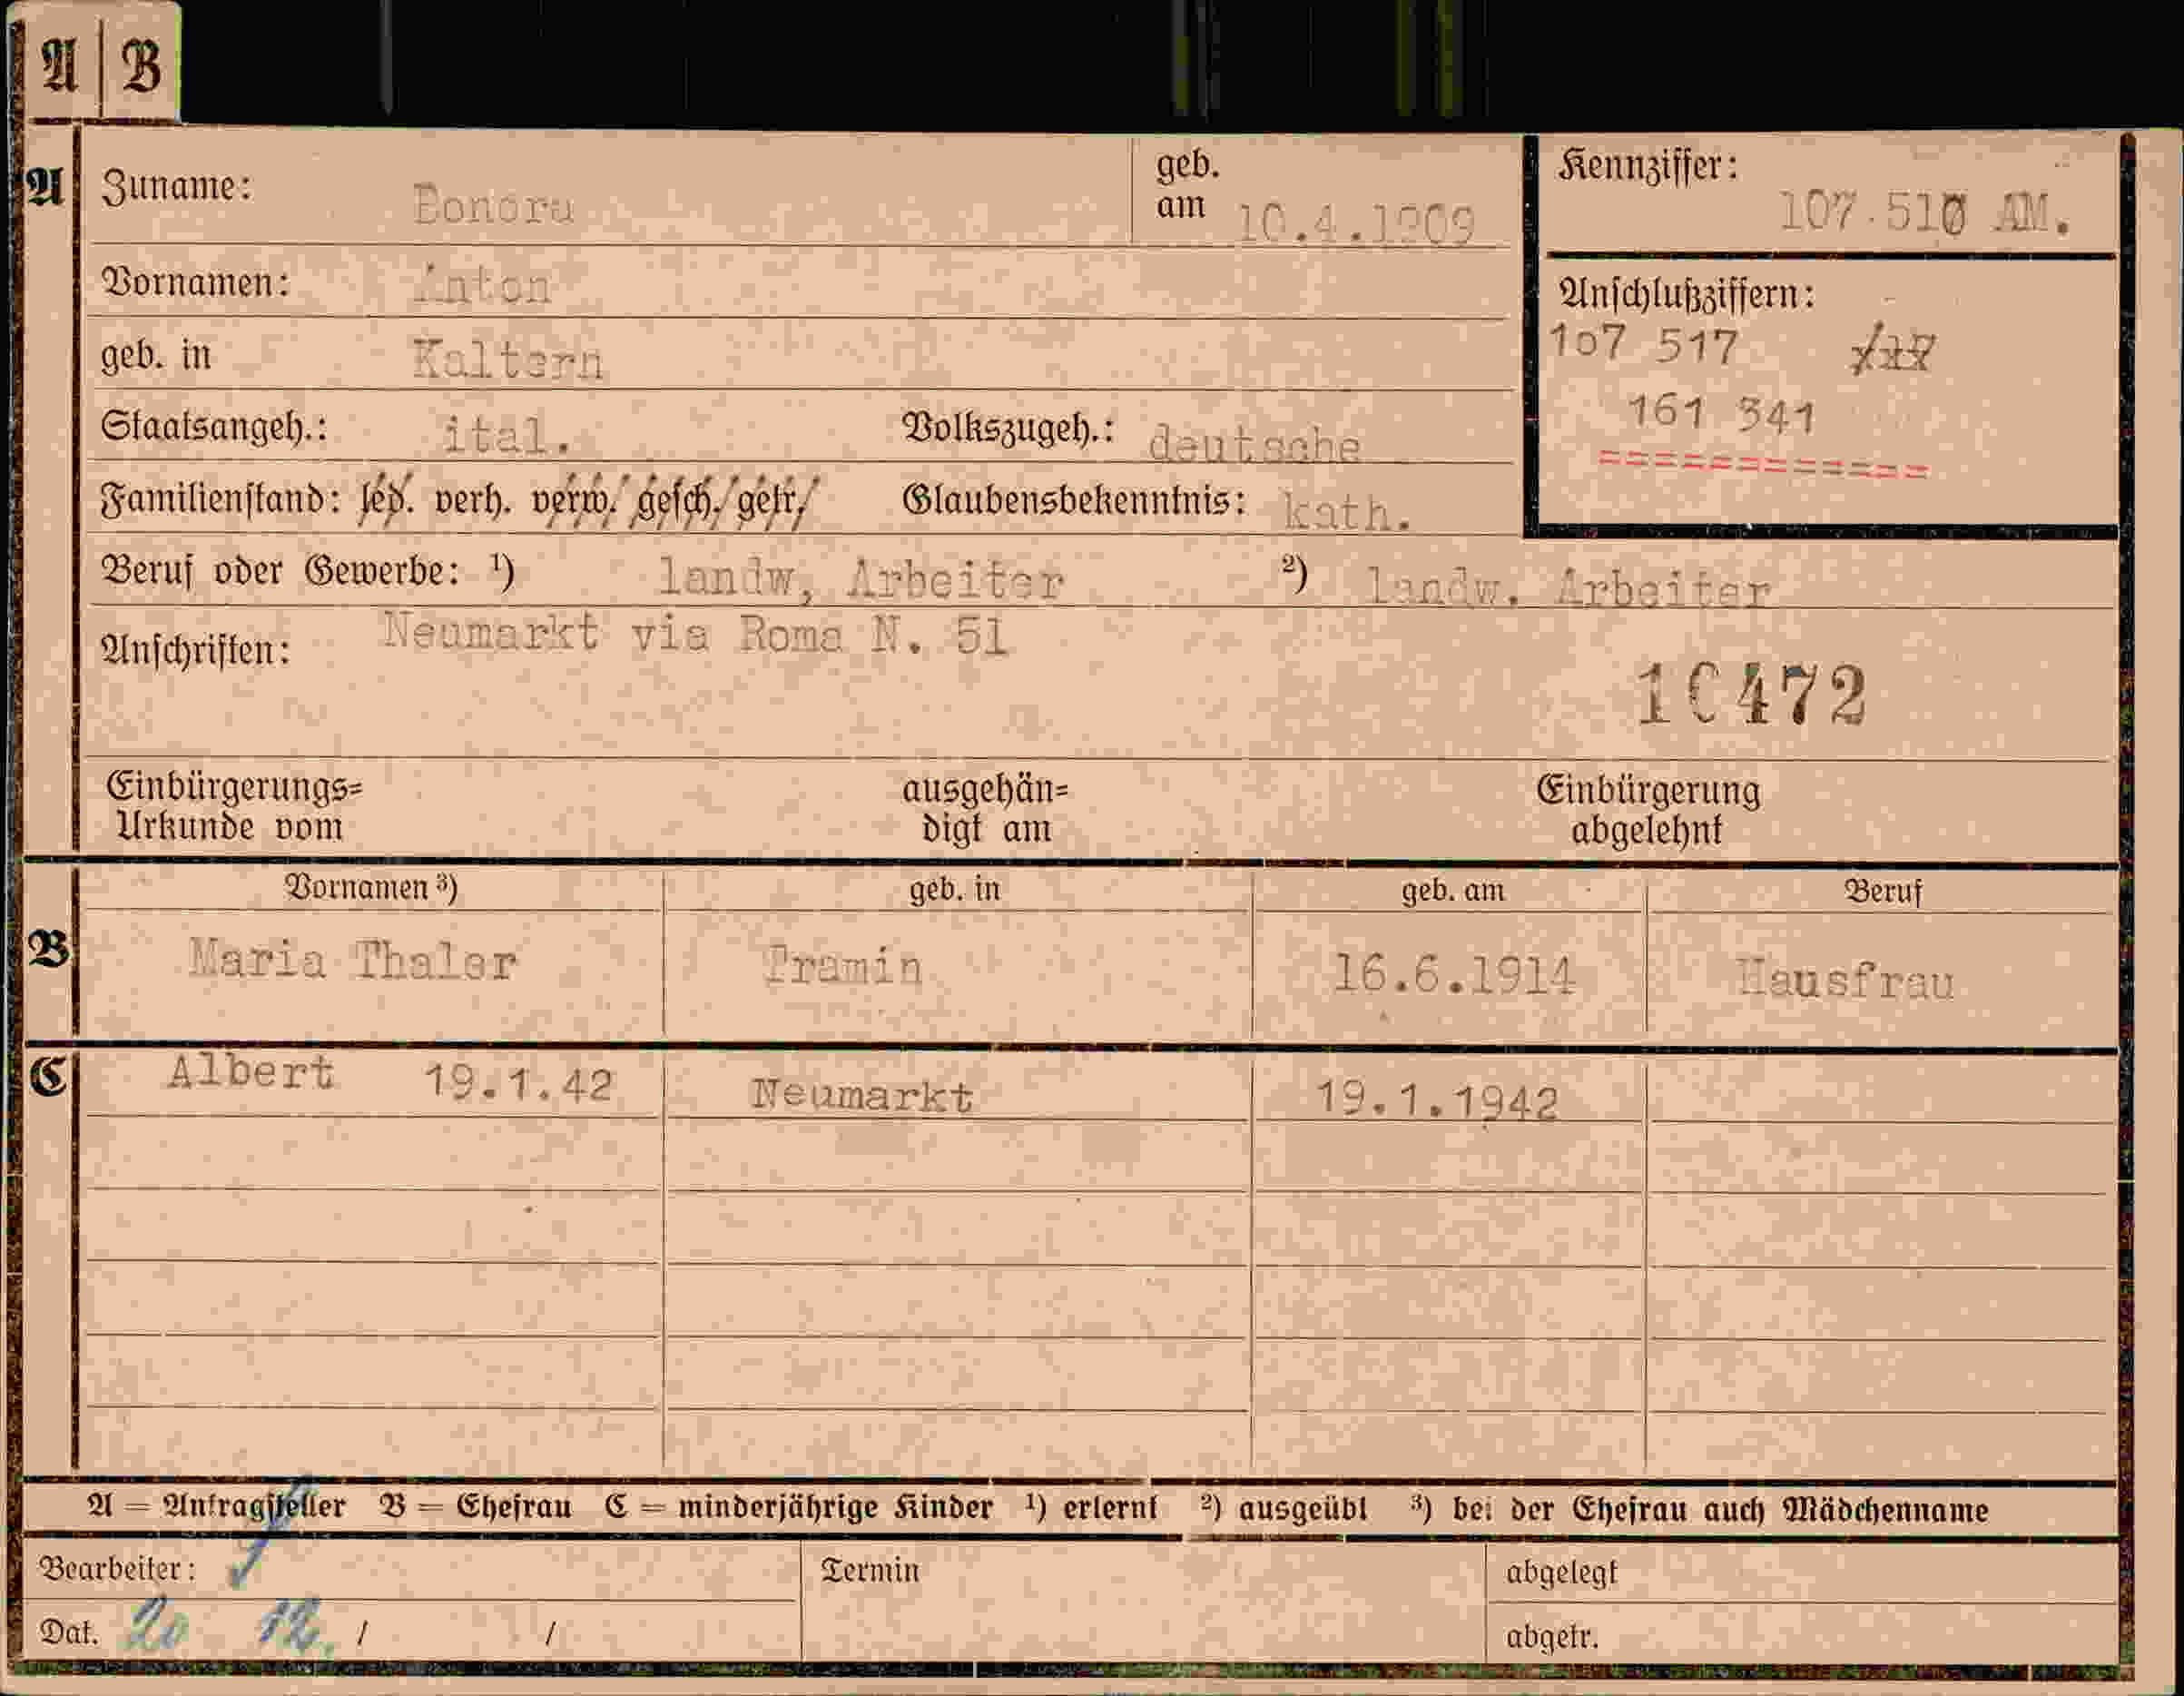 A | B
A Zuname: Bonora geb. am 10.4.1909 Kennziffer: 107.510 AM.
Vornamen: Anton Anschlußziffern:
107 517
geb. in Kaltern
161 341
Staatsangeh.: ital. Volkszugeh.: deutsche
============
Familienstand: led. verh. verw. gesch. getr. Glaubensbekenntnis: kath.
Beruf oder Gewerbe: ¹) landw, Arbeiter ²) landw. Arbeiter
Anschriften: Neumarkt via Roma N. 51
10472
Einbürgerungs= ausgehän= Einbürgerung
Urkunde vom digt am abgelehnt
Vornamen ³) geb. in geb. am Beruf
B Maria Thaler Tramin 16.6.1914 Hausfrau
C Albert 19.1.42 Neumarkt 19.1.1942
A = Antragsteller B = Ehefrau C = minderjährige Kinder ¹) erlernt ²) ausgeübt ³) bei der Ehefrau auch Mädchenname
Bearbeiter: Termin abgelegt
Dat. 20 12. / / abgetr.